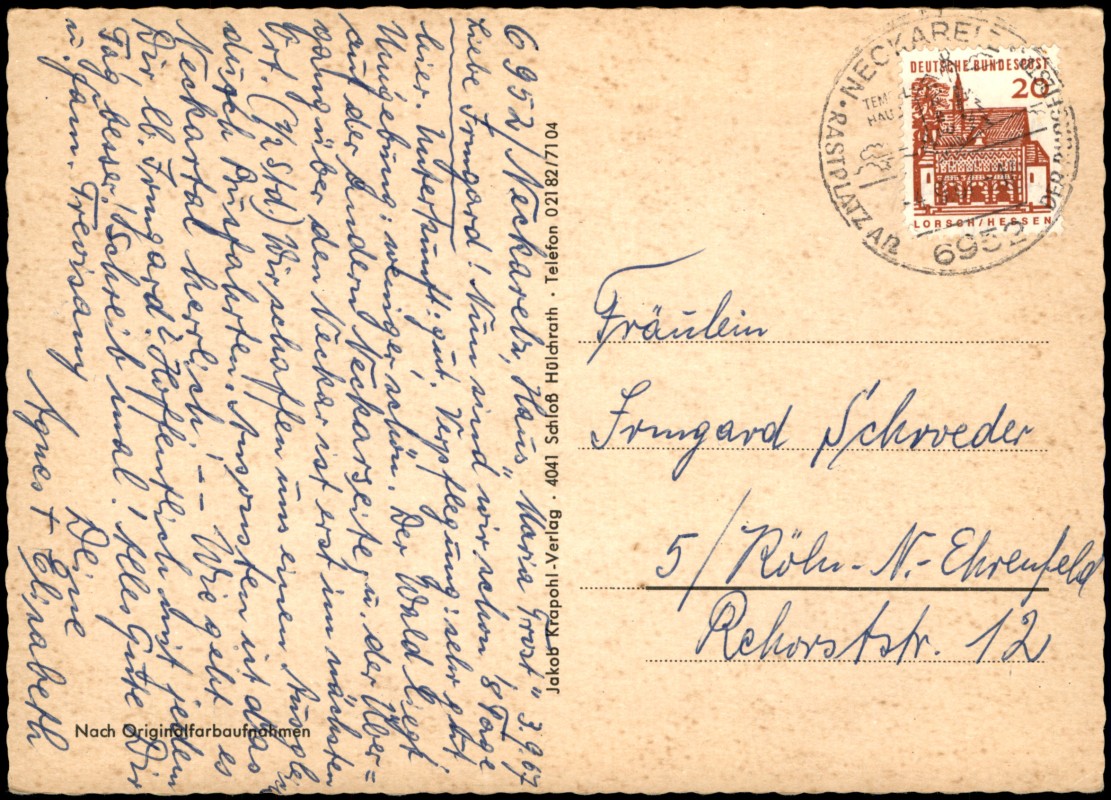 6952/Neckarelz, Haus „Maria Trost" 3.9.67
Liebe Irmgard! Nun sind wir schon 8 Tage
hier. Unterkunft: gut. Verpflegung: sehr gut
Umgebung: weniger schön. Der Wald liegt
auf der andern Neckarseite u. der Über=
gang über den Neckar ist erst im nächsten
Ort. (½ Std.) Wir schaffen uns einen Ausglei
durch Ausfahrten. Ansonsten ist das
Neckartal herrlich! -- Wie geht es
Dir lb. Irmgard? Hoffentlich mit jedem
Tag besser! Schreib mal! Alles Gute Dir
u. Fam. Trevisany
Deine
Agnes + Elisabeth
Nach Originalfarbaufnahmen
Jakob Krapohl-Verlag · 4041 Schloß Hülchrath · Telefon 02182/7104
NECKARELZ
RASTPLATZ AN DER BURGENSTR
TEMPEL
HAUS
6952
DEUTSCHE BUNDESPOST
20
LORSCH/HESSEN
Fräulein
Irmgard Schroeder
5/Köln-N.-Ehrenfeld
Rehorststr. 12